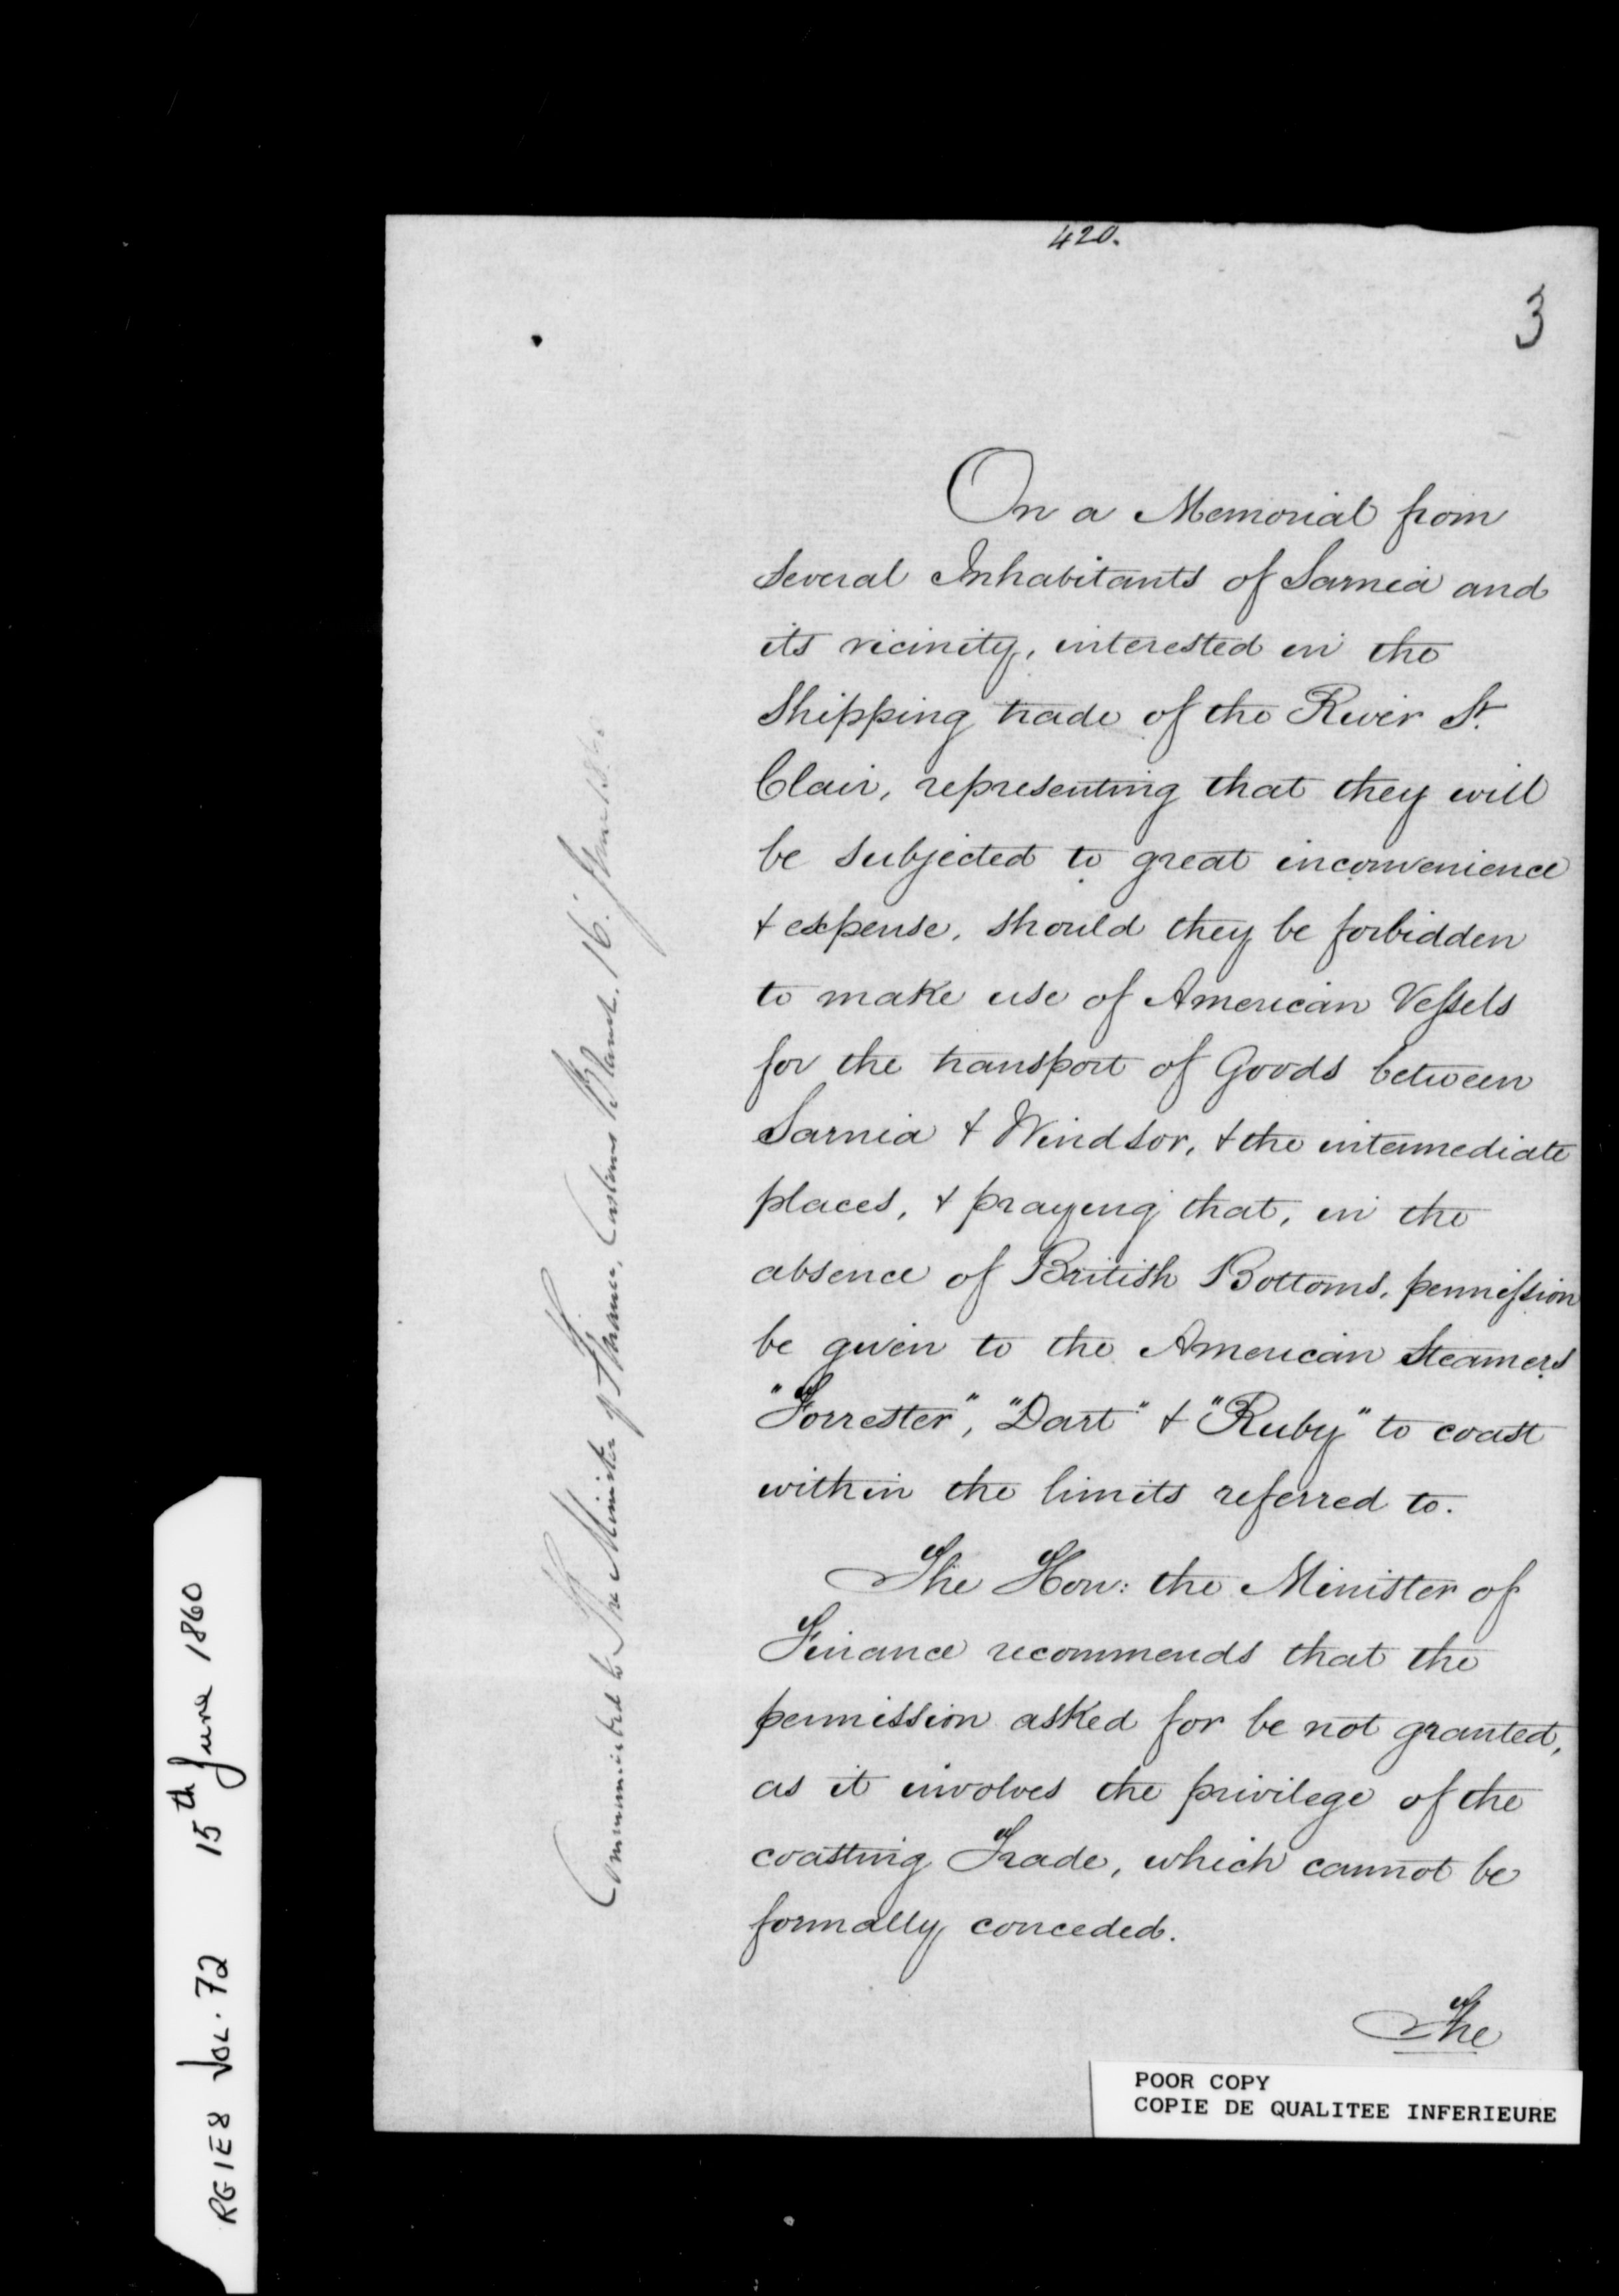 420.
3
On a Memorial from
several Inhabitants of Sarnia and
its vicinity, interested in the
Shipping trade of the River St.
Clair, representing that they will
be subjected to great inconvenience
& expense, should they be forbidden
to make use of American Vessels
for the transport of Goods between
Sarnia & Windsor, & the intermediate
places, & praying that, in the
absence of British Bottoms, permission
be given to the American Steamers
"Forrester", "Dart" & "Ruby" to coast
within the limits referred to.
The Hon: the Minister of
Finance recommends that the
permission asked for be not granted,
as it involves the privilege of the
coasting Trade, which cannot be
formally conceded.
The
Communicated to The Minister of Finance, Customs Branch, 16. June 186
RG1E8 VOL. 72 15th June 1860
POOR COPY
COPIE DE QUALITEE INFERIEURE